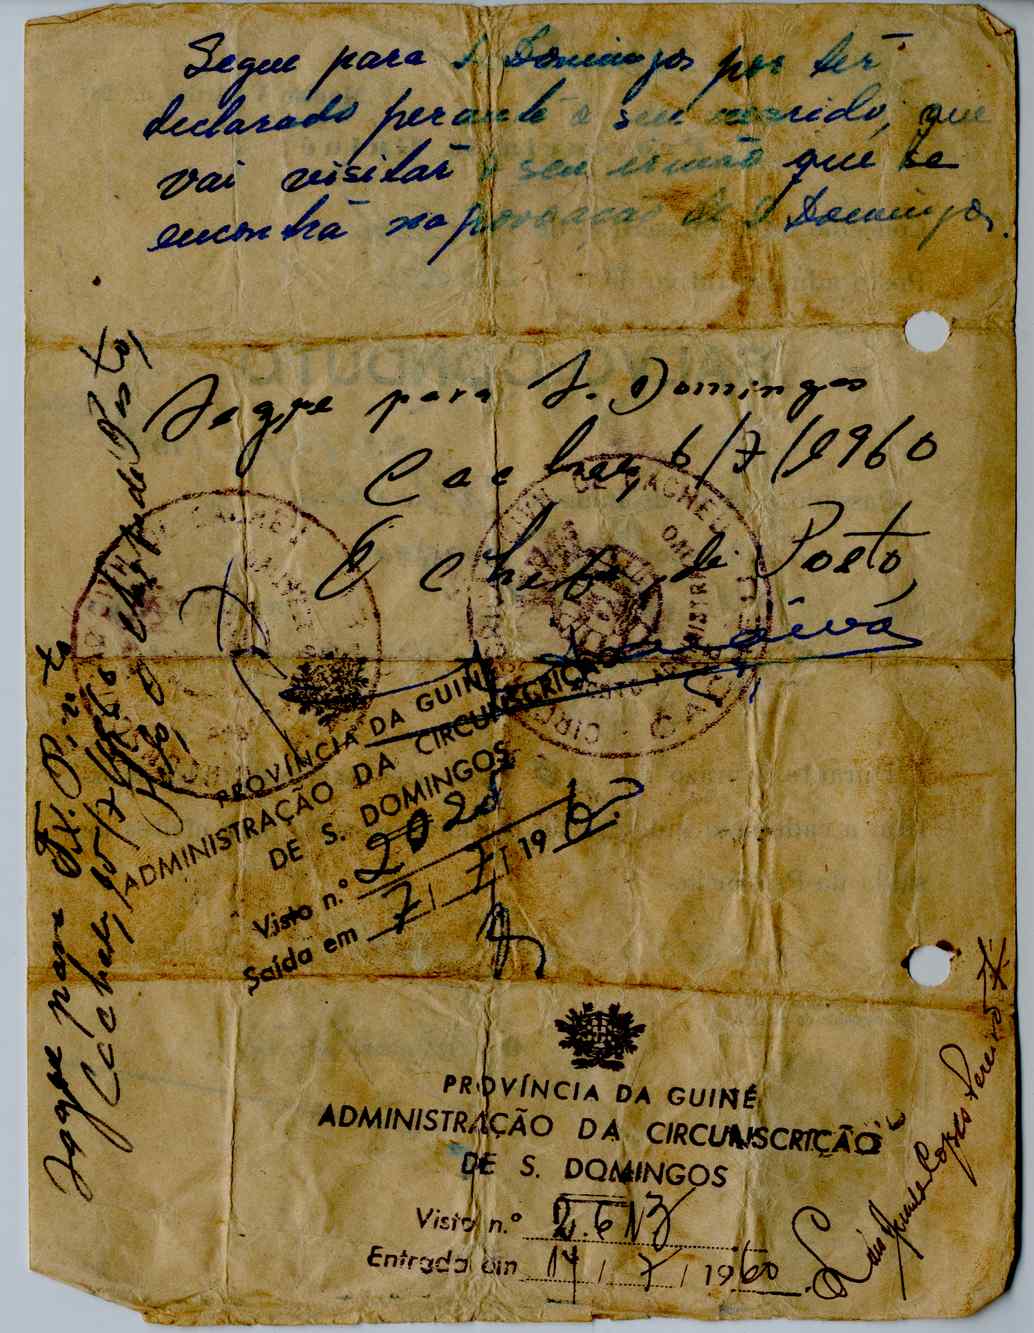 Segue para S. Domingos por ter
declarado perante o seu marido, que
vai visitar o seu irmão que se
encontra na povoação de S. Domingos.
Segue para S. Domingos
Cacheu, 6/7/1960
O Chefe de Posto,
PROVÍNCIA DA GUINÉ
ADMINISTRAÇÃO DA CIRCUNSCRIÇÃO
DE S. DOMINGOS
Visto n.º 2020
Saída em 7 / 7 / 1960
Segue para
Cacheu, 15/7/1960
O Chefe de Posto
PROVÍNCIA DA GUINÉ
ADMINISTRAÇÃO DA CIRCUNSCRIÇÃO
DE S. DOMINGOS
Visto n.º
Entrada em 14 / 7 / 1960